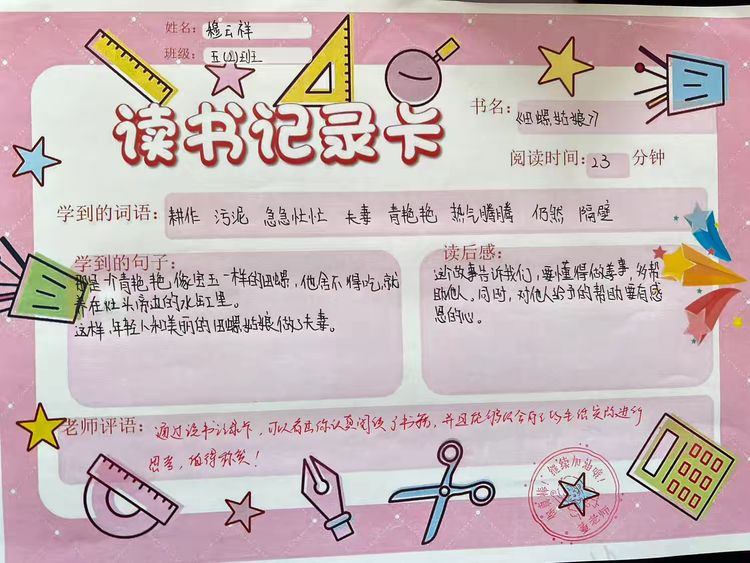 姓名：穆云祥
班级：五(四)班
读书记录卡
书名：《田螺姑娘》
阅读时间：23 分钟
学到的词语：耕作 污泥 急急忙忙 夫妻 青艳艳 热气腾腾 仍然 隔壁
学到的句子：
那是一个青艳艳，像宝玉一样的田螺，他舍不得吃，就
养在灶头旁边的水缸里。
这样，年轻人和美丽的田螺姑娘做了夫妻。
读后感：
这故事告诉我们，要懂得做善事，多帮
助他人。同时，对他人给予的帮助要有感
恩的心。
老师评语：通过读书记录卡，可以看出你认真阅读了书籍，并且能够结合自己的生活实际进行
思考，值得称赞！
你真棒！继续加油哦！